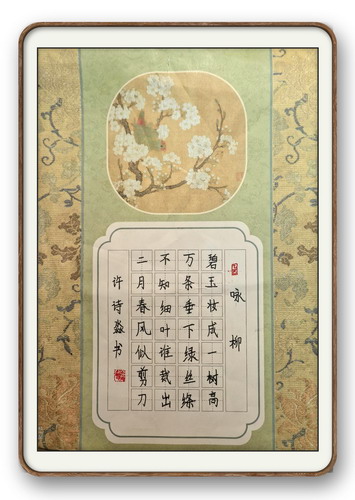 咏柳
碧玉妆成一树高
万条垂下绿丝绦
不知细叶谁裁出
二月春风似剪刀
许诗淼书